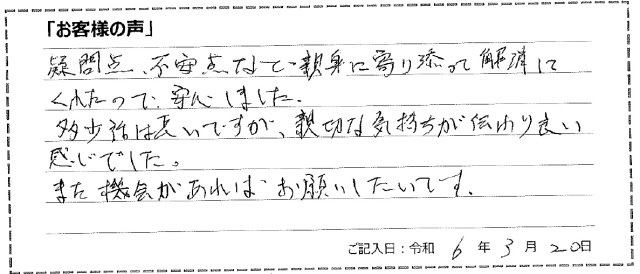 「お客様の声」
疑問点、不安点など親身に寄り添って解消して
くれたので、安心しました。
多少話は長いですが、親切な気持ちが伝わり良い
感じでした。
また機会があればお願いしたいです。
ご記入日：令和 6 年 3 月 20日